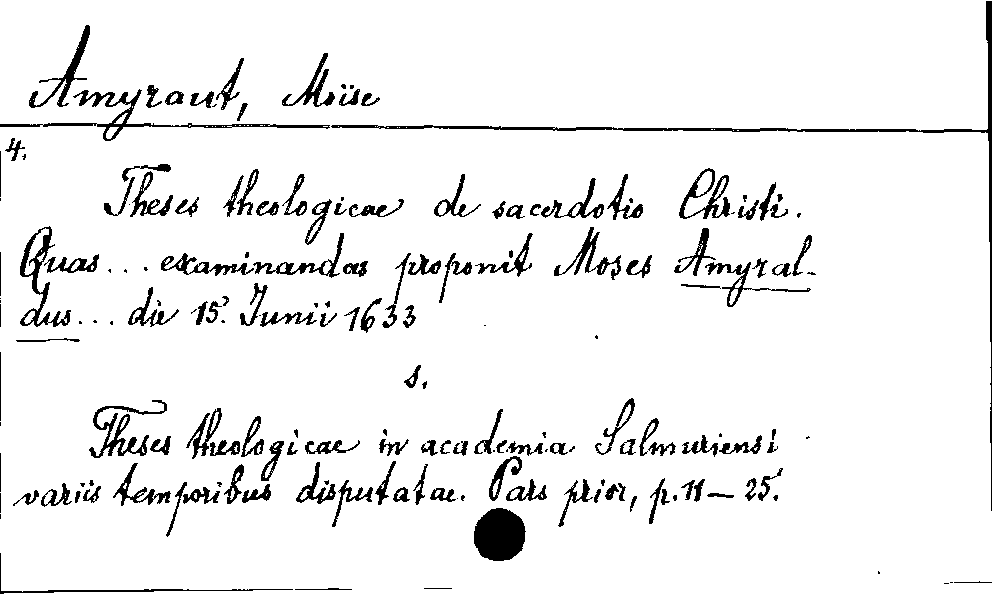 Amyraut, Moïse
4.
Theses theologicae de sacerdotio Christi.
Quas... examinandas proponit Moses Amyral-
dus... die 15. Junii 1633
s.
Theses theologicae in academia Salmuriensi
variis temporibus disputatae. Pars prior, p. 11-25.